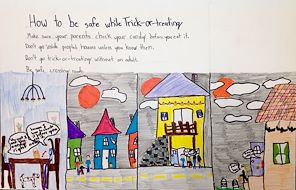 How to be safe while Trick-or-treating
Make sure your parents check your candy before you eat it.
Don't go inside people's houses unless you know them.
Don't go trick-or-treating without an adult.
Be safe crossing roads.